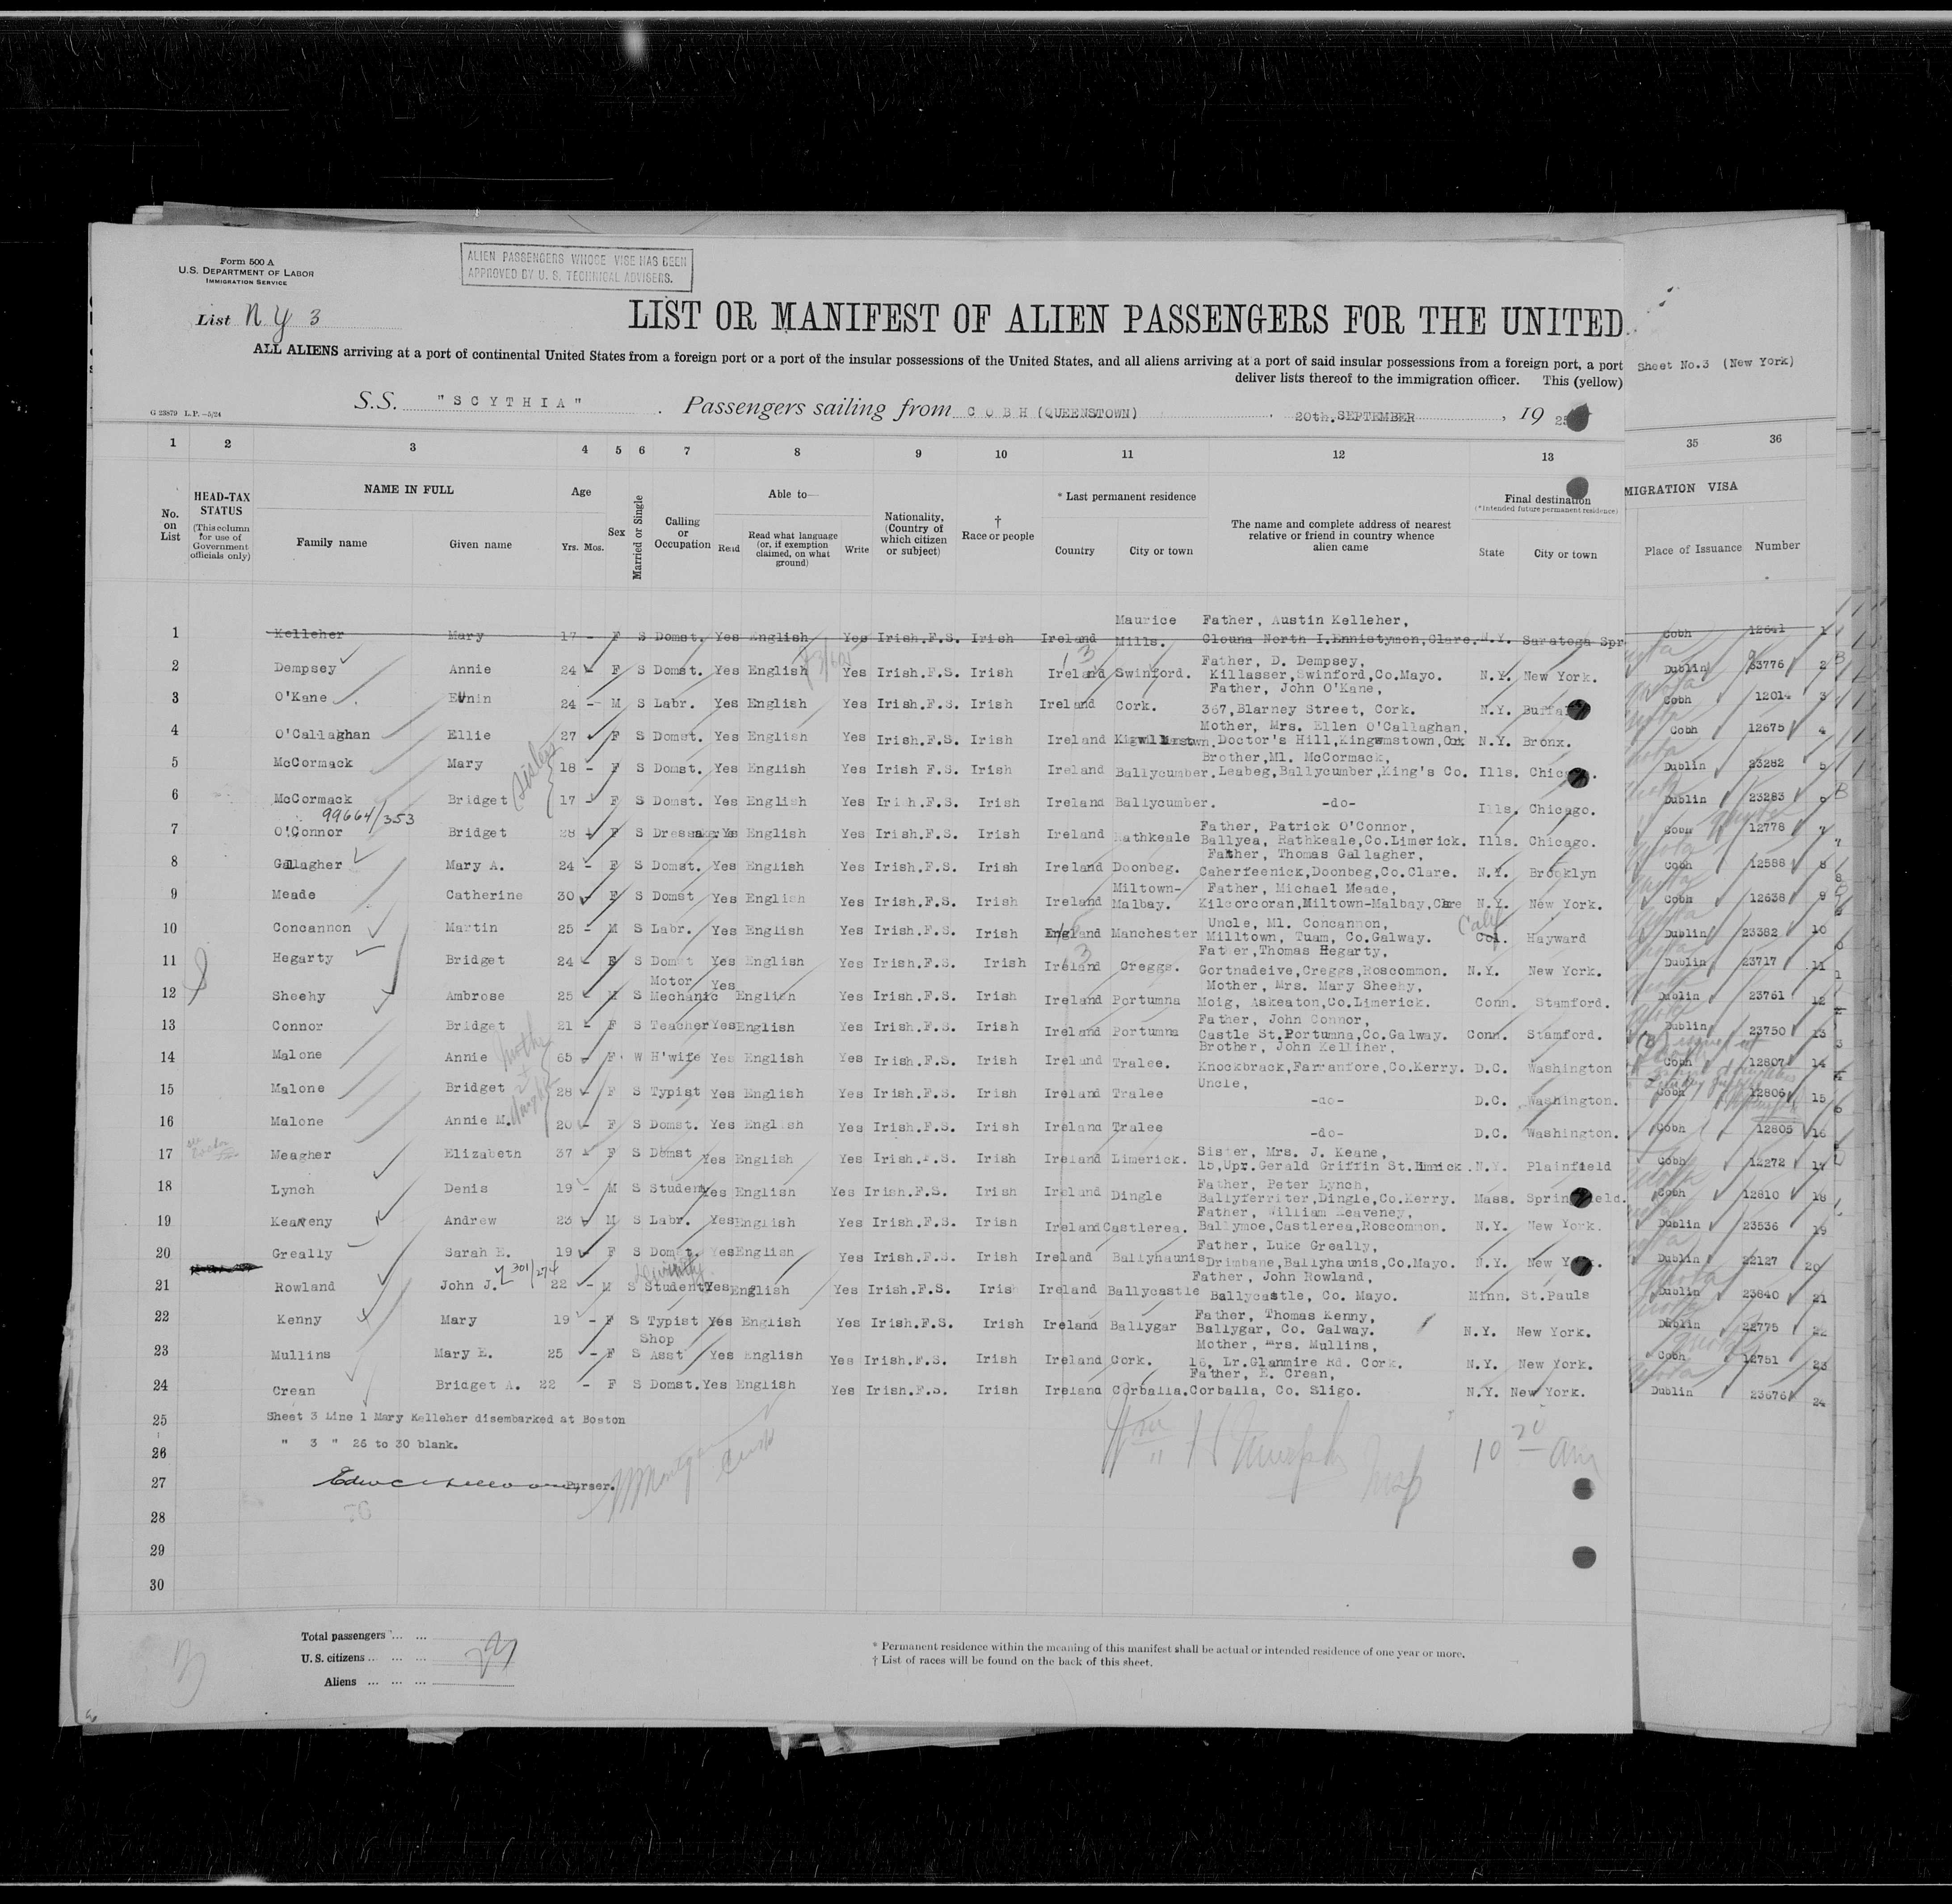 Form 500 A
U.S. DEPARTMENT OF LABOR
IMMIGRATION SERVICE
ALIEN PASSENGERS WHOSE VISE HAS BEEN
APPROVED BY U. S. TECHNICAL ADVISERS.
List N Y 3
LIST OR MANIFEST OF ALIEN PASSENGERS FOR THE UNITED
ALL ALIENS arriving at a port of continental United States from a foreign port or a port of the insular possessions of the United States, and all aliens arriving at a port of said insular possessions from a foreign port, a port
Sheet No.3 (New York)
deliver lists thereof to the immigration officer. This (yellow)
G 23879 L.P.—5/24
S.S. "SCYTHIA" Passengers sailing from COBH (QUEENSTOWN), 20th.SEPTEMBER, 19 25
1 2 3 4 5 6 7 8 9 10 11 12 13 35 36
No. on List
HEAD-TAX STATUS
(This column for use of Government officials only)
NAME IN FULL
Family name Given name
Age
Yrs. Mos.
Sex
Married or Single
Calling or Occupation
Able to—
Read Read what language (or, if exemption claimed, on what ground) Write
Nationality, (Country of which citizen or subject)
† Race or people
* Last permanent residence
Country City or town
The name and complete address of nearest relative or friend in country whence alien came
Final destination
(*Intended future permanent residence)
State City or town
MIGRATION VISA
Place of Issuance Number
1 Kelleher Mary 17 - F S Domst. Yes English Yes Irish.F.S. Irish Ireland Maurice Mills. Father, Austin Kelleher, Clouna North I.Ennistymon,Clare. N.Y. Saratoga Spr Cobh 12641 1
2 Dempsey Annie 24 - F S Domst. Yes English Yes Irish.F.S. Irish Ireland Swinford. Father, D. Dempsey, Killasser,Swinford,Co.Mayo. N.Y. New York. Dublin 23776 2
3 O'Kane 24 - M S Labr. Yes English Yes Irish.F.S. Irish Ireland Cork. Father, John O'Kane, 367,Blarney Street, Cork. N.Y. Cobh 12014 3
4 O'Callaghan Ellie 27 F S Domst. Yes English Yes Irish.F.S. Irish Ireland Mother, Mrs. Ellen O'Callaghan, Doctor's Hill,Kingwmstown, N.Y. Bronx. Cobh 12675 4
Sisters
5 McCormack Mary 18 - F S Domst. Yes English Yes Irish F.S. Irish Ireland Ballycumber. Brother,Ml. McCormack, Leabeg,Ballycumber,King's Co. Ills. Chicago. Dublin 23282 5
6 McCormack Bridget 17 - F S Domst. Yes English Yes Irish.F.S. Irish Ireland Ballycumber. -do- Ills. Chicago. Dublin 23283
99664/353
7 O'Connor Bridget 28 F S Yes English Yes Irish.F.S. Irish Ireland Rathkeale Father, Patrick O'Connor, Ballyea, Rathkeale,Co.Limerick. Ills. Chicago. Cobh 12778 7
8 Gallagher Mary A. 24 - F S Domst. Yes English Yes Irish.F.S. Irish Ireland Doonbeg. Father, Thomas Gallagher, Caherfeenick,Doonbeg,Co.Clare. N.Y. Brooklyn Cobh 12588 8
9 Meade Catherine 30 F S Domst Yes English Yes Irish.F.S. Irish Ireland Miltown-Malbay. Father, Michael Meade, Kilcorcoran,Miltown-Malbay,Clare N.Y. New York. Cobh 12638 9
10 Concannon Martin 25 - M S Labr. Yes English Yes Irish.F.S. Irish England Manchester Uncle, Ml. Concannon, Milltown, Tuam, Co.Galway. Calif Col. Hayward Dublin 23382 10
11 Hegarty Bridget 24 F S Domst Yes English Yes Irish.F.S. Irish Ireland Creggs. Father,Thomas Hegarty, Gortnadeive,Creggs,Roscommon. N.Y. New York. Dublin 23717 11
12 Sheehy Ambrose 25 M S Motor Mechanic Yes English Yes Irish.F.S. Irish Ireland Portumna Mother, Mrs. Mary Sheehy, Moig, Askeaton,Co.Limerick. Conn. Stamford. Dublin 23761 12
13 Connor Bridget 21 - F S Teacher Yes English Yes Irish.F.S. Irish Ireland Portumna Father, John Connor, Castle St.Portumna,Co.Galway. Conn. Stamford. Dublin 23750 13
14 Malone Annie 65 F W H'wife Yes English Yes Irish.F.S. Irish Ireland Tralee. Brother, John Kelliher, Knockbrack,Farranfore,Co.Kerry. D.C. Washington Cobh 12807 14
15 Malone Bridget 28 F S Typist Yes English Yes Irish.F.S. Irish Ireland Tralee Uncle, -do- D.C. Washington. Cobh 12806 15
16 Malone Annie M. 20 - F S Domst. Yes English Yes Irish.F.S. Irish Ireland Tralee -do- D.C. Washington. Cobh 12805 16
17 Meagher Elizabeth 37 F S Domst Yes English Yes Irish.F.S. Irish Ireland Limerick. Sister, Mrs. J. Keane, 15,Upr.Gerald Griffin St. N.Y. Plainfield Cobh 12272 17
18 Lynch Denis 19 - M S Student Yes English Yes Irish.F.S. Irish Ireland Dingle Father, Peter Lynch, Ballyferriter,Dingle,Co.Kerry. Mass. Springfield. Cobh 12810 18
19 Keaveny Andrew 23 M S Labr. Yes English Yes Irish.F.S. Irish Ireland Castlerea. Father, William Keaveney, Ballymoe,Castlerea,Roscommon. N.Y. New York. Dublin 23536 19
20 Greally Sarah E. 19 F S Domst. Yes English Yes Irish.F.S. Irish Ireland Ballyhaunis Father, Luke Greally, Drimbane,Ballyhaunis,Co.Mayo. N.Y. New York. Dublin 22127 20
301/274
21 Rowland John J. 22 - M S Divinity Student Yes English Yes Irish.F.S. Irish Ireland Ballycastle Father, John Rowland, Ballycastle, Co. Mayo. Minn. St.Pauls Dublin 23840 21
22 Kenny Mary 19 - F S Typist Yes English Yes Irish.F.S. Irish Ireland Ballygar Father, Thomas Kenny, Ballygar, Co. Galway. N.Y. New York. Dublin 22775 22
23 Mullins Mary E. 25 - F S Shop Asst Yes English Yes Irish.F.S. Irish Ireland Cork. Mother, Mrs. Mullins, 16, Lr.Glanmire Rd. Cork. N.Y. New York. Cobh 12751 23
24 Crean Bridget A. 22 - F S Domst. Yes English Yes Irish.F.S. Irish Ireland Corballa. Father, E. Crean, Corballa, Co. Sligo. N.Y. New York. Dublin 23676 24
25 Sheet 3 Line 1 Mary Kelleher disembarked at Boston
26 " 3 " 25 to 30 blank.
27 Purser.
28
29
30
Total passengers ... ...
U. S. citizens ... ... ...
Aliens ... ... ...
* Permanent residence within the meaning of this manifest shall be actual or intended residence of one year or more.
† List of races will be found on the back of this sheet.